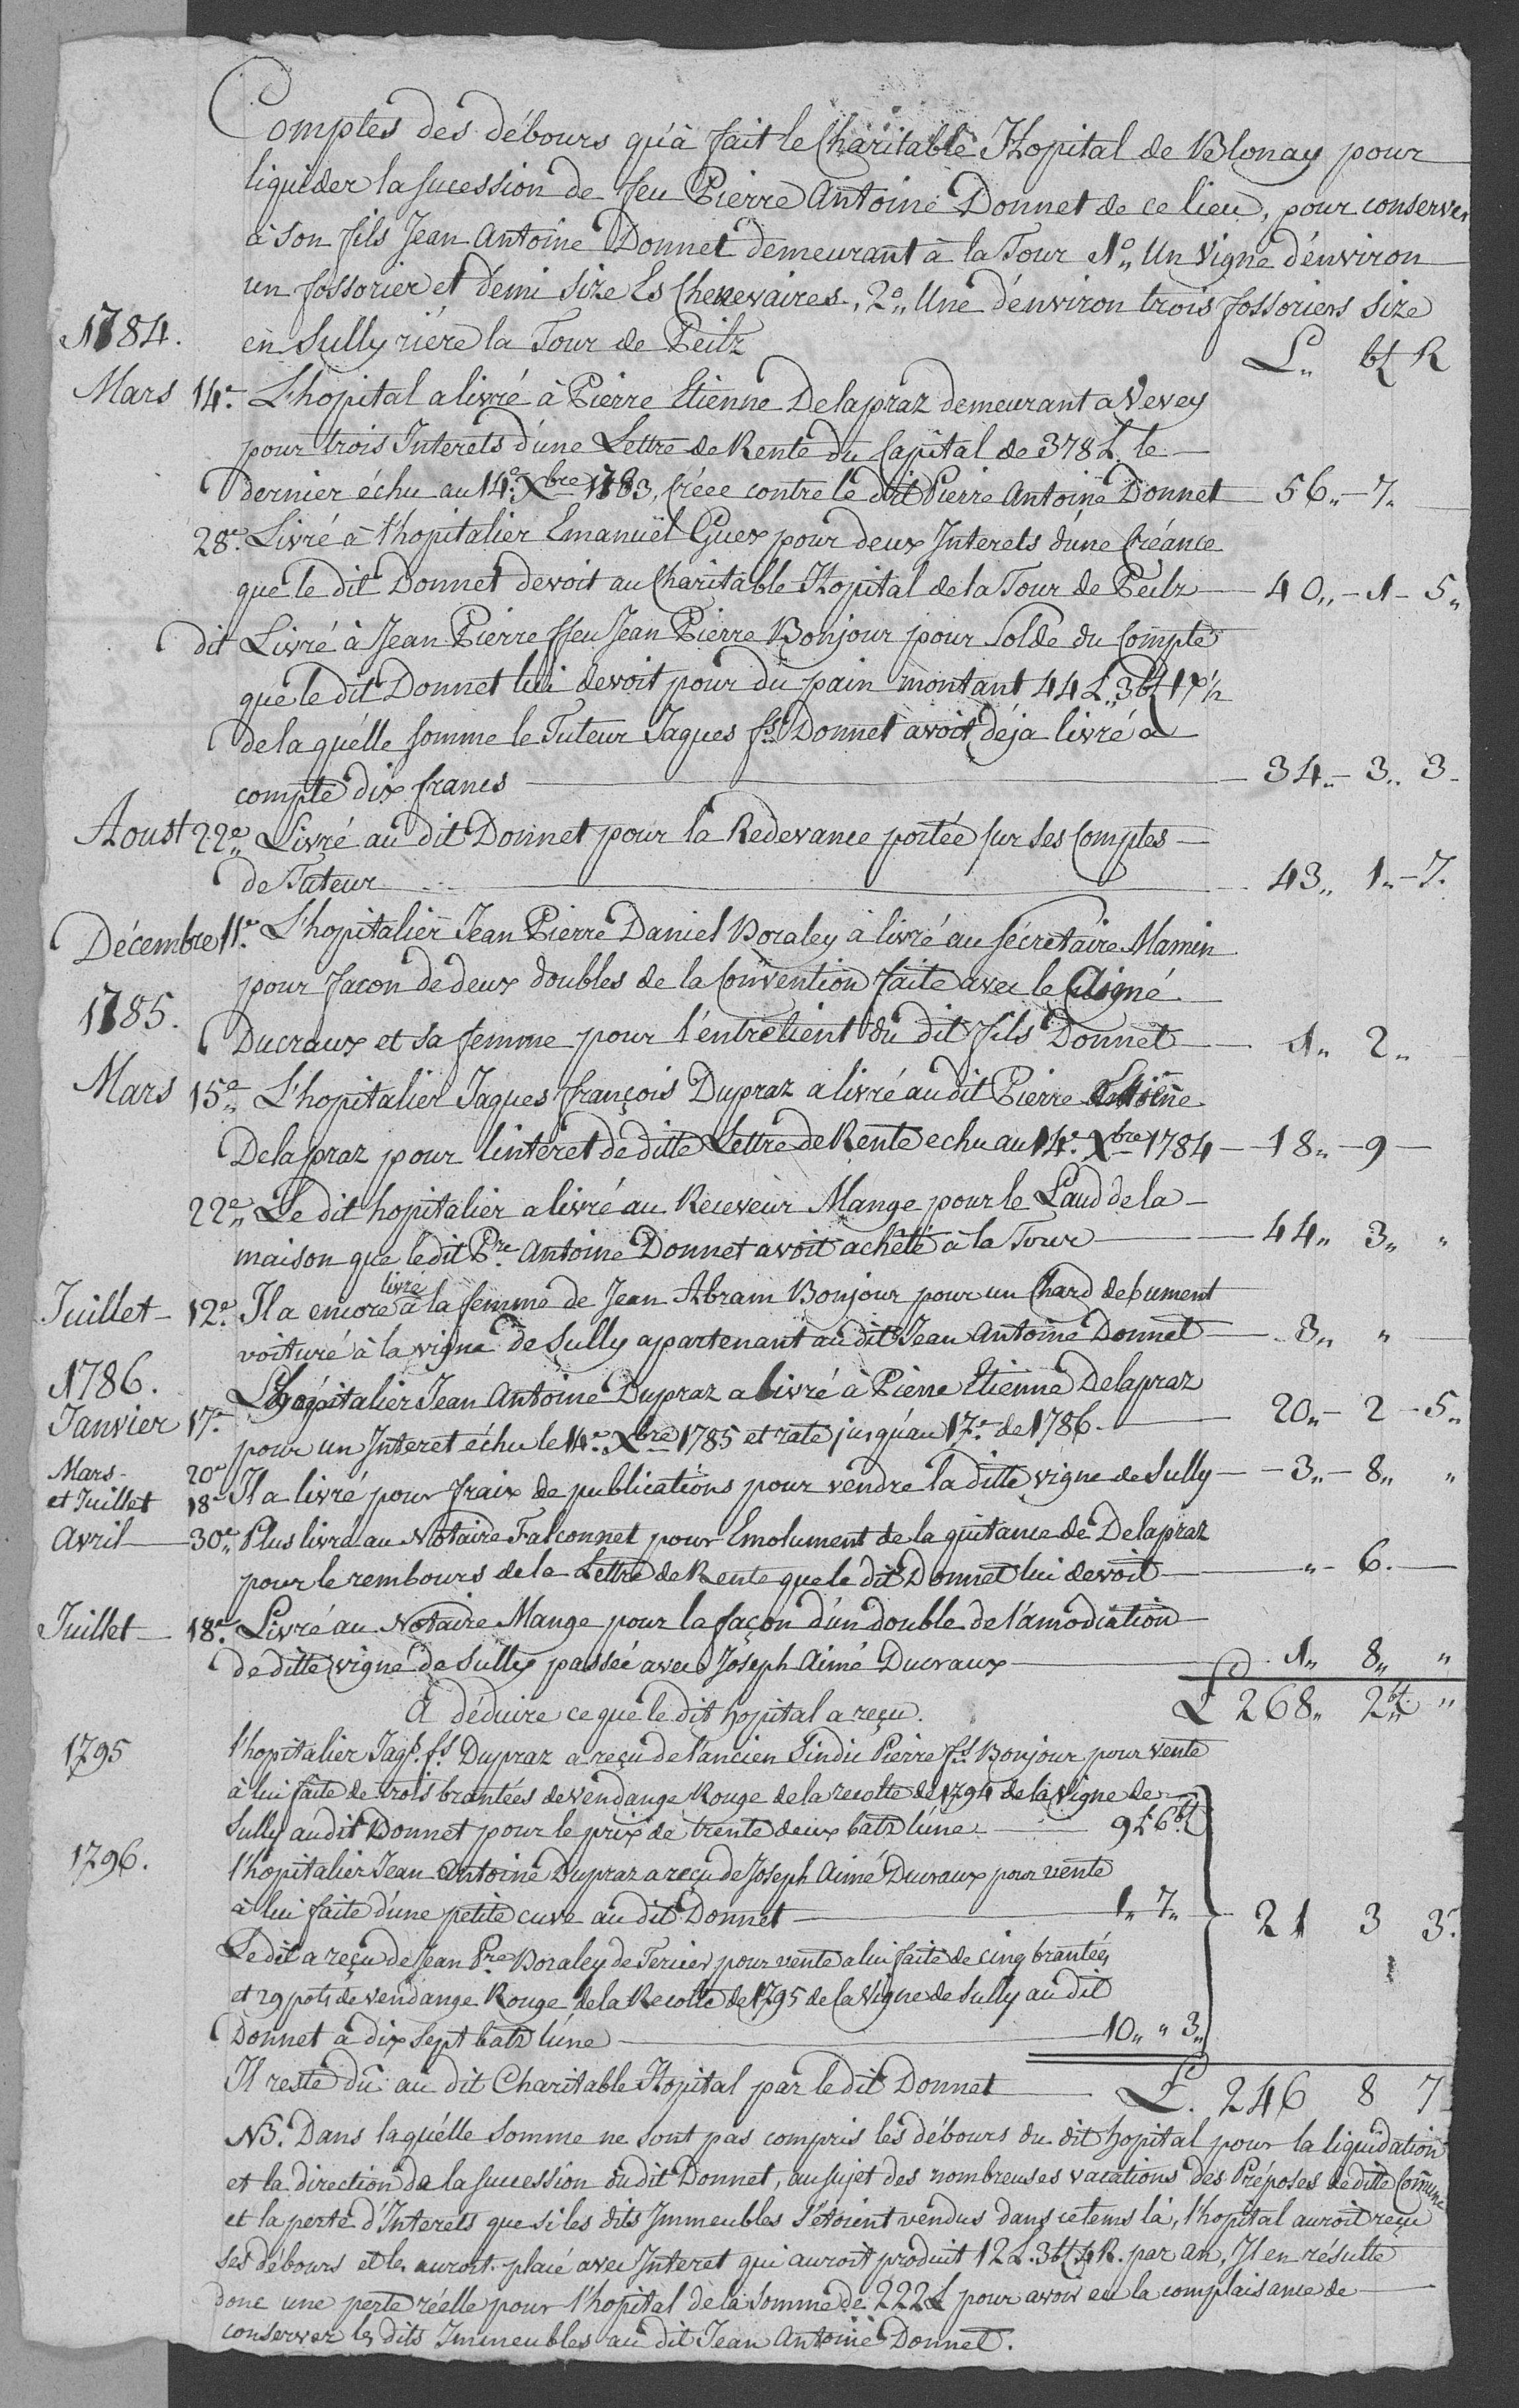 Comptes des débours qu'à fait le Charitable Hopital de Blonay pour
liquider la sucession de feu Pierre Antoine Donnet de ce lieu, pour conserver
à son fils Jean Antoine Donnet demeurant à la Tour 1°„ Un Vigne d'environ
un fossorier et demi size Es Chenevaires, 2°„ Une d'environ trois fossoriers size
1784. en Sully riére la Tour de Peilz L„ bz R
Mars 14e. L'hopital a livré à Pierre Etienne Delapraz demeurant a Vevey
pour trois Interets d'une Lettre de Rente du Capital de 378 L. le
dernier échu au 14e. Xbre 1783, créée contre le dit Pierre Antoine Donnet 56„ - 7„
28e. Livré à l'hopitalier Emanuël Guex pour deux Interets d'une Créance
que le dit Donnet devoit au Charitable Hopital de la Tour de Peilz 40„ - 1 - 5„
dit Livré à Jean Pierre ffeu Jean Pierre Bonjour pour Solde du Compte
que le dit Donnet lui devoit pour du pain montant 44 L„ 3 bz 1 x 1/2
de laquélle somme le Tuteur Jaques fs. Donnet avoit déja livré à
compte dix francs 34„ - 3„ 3 -
Aoust 22e„ Livré au dit Donnet pour la Redevance portée sur ses Comptes
de Tuteur 43„ 1„ - 7.
Décembre 11e. L'hopitalier Jean Pierre Daniel Boraley à livré au sécretaire Mamin
pour facon de deux doubles de la Convention faite avec le Aigné
1785. Ducraux et sa femme pour l'entretient du dit fils Donnet 1„ 2„
Mars 15e„ L'hopitalier Jaques françois Dupraz a livré au dit Pierre Etiene
Delapraz pour linteret de ditte Lettre de Rente echu au 14e. Xbre 1784 - 18„ - 9 -
22e„ Le dit hopitalier a livré au Receveur Mange pour le Laud de la
maison que le dit Pre. Antoine Donnet avoit achêté à la Tour 44„ 3„ „
Juillet - 12e. Il a encore livré à la femme de Jean Abram Bonjour pour un Chard de fument
voituré à la vigne de Sully appartenant au dit Jean Antoine Donnet 3„ „
1786. L'hopitalier Jean Antoine Dupraz a livré à Pierre Etienne Delapraz
Janvier 17e. pour un Interet échu le 14e. Xbre 1785 et rate jusqu'au 17e. de 1786. 20„ - 2 - 5„
Mars 20e
et Juillet 18e Il a livré pour fraix de publications pour vendre la ditte vigne de Sully - 3„ - 8„ „
Avril 30e„ Plus livré au Notaire Falconnet pour Emolument de la quitance de Delapraz
pour le rembours de la Lettre de Rente que le dit Donnet lui devoit „ - 6. -
Juillet 18e. Livré au Notaire Mange pour la façon d'un double de l'amodiation
de ditte vigne de Sully passée avec Joseph Aimé Ducraux 1„ 8„ „
A déduire ce que le dit hopital a reçu. L 268„ 2„bz „
1795 l'hopitalier Jaqs. fs Dupraz a reçu de l'ancien Sindic Pierre fs Bonjour pour vente
à lui faite de trois brantées de vendange Rouge de la recolte de 1794 de la Vigne de
Sully au dit Donnet pour le prix de trente deux batz l'úne 9 L 6 bz
1796. l'hopitalier Jean Antoine Dupraz a reçu de Joseph Aimé Ducraux pour vente
à lui faite d'une petite cuve au dit Donnet 1„ 7„ 21 3 3.
Le dit a reçu de Jean Pre Boraley de Tercier pour vente a lui faite de cinq brantées
et 29 pots de vendange Rouge de la Recolte de 1795 de la Vigne de Sully au dit
Donnet à dix sept batz l'úne 10„ „ 3„
Il reste dû au dit Charitable Hopital par le dit Donnet L. 246 8 7
NB. Dans laquélle somme ne sont pas compris les débours du dit hopital pour la liquidation
et la direction de la succession du dit Donnet, au sujet des nombreuses vacations des Préposes de ditte Comune
et la perte d'Interets que si les dits Immeubles s'étoient vendus dans ce tems là, l'hopital auroit reçu
ses débours et les auroit placé avec Interet qui auroit produit 12 L. 3 bz 4 R. par an, Il en résulte
donc une perte réelle pour l'hopital de la somme de 222 L pour avoir eu la complaisance de
conserver les dits Immeubles au dit Jean Antoine Donnet.